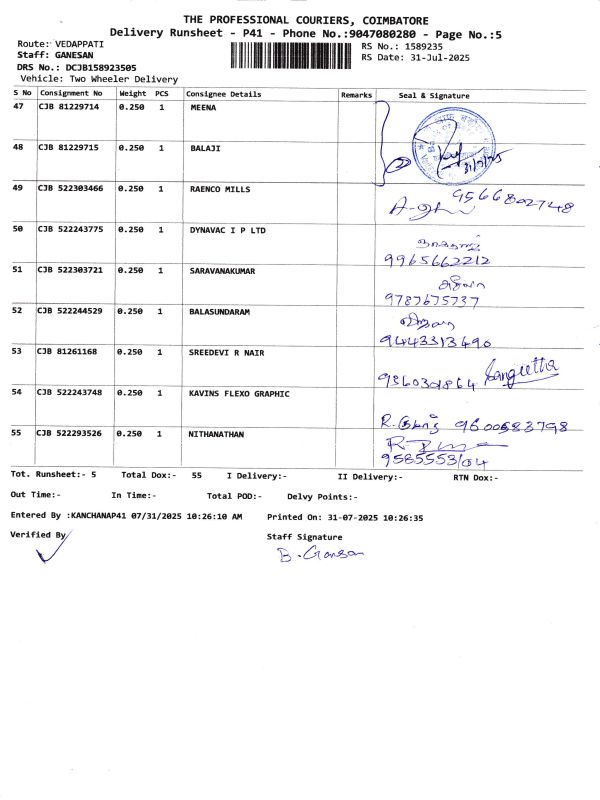 THE PROFESSIONAL COURIERS, COIMBATORE
Delivery Runsheet - P41 - Phone No.:9047080280 - Page No.:5
Route: VEDAPPATI
RS No.: 1589235
Staff: GANESAN
RS Date: 31-Jul-2025
DRS No.: DCJB158923505
Vehicle: Two Wheeler Delivery
S No Consignment No Weight PCS Consignee Details Remarks Seal & Signature
47 CJB 81229714 0.250 1 MEENA
48 CJB 81229715 0.250 1 BALAJI
31/7/25
49 CJB 522303466 0.250 1 RAENCO MILLS
9566802748
50 CJB 522243775 0.250 1 DYNAVAC I P LTD
9965662212
51 CJB 522303721 0.250 1 SARAVANAKUMAR
9787675737
52 CJB 522244529 0.250 1 BALASUNDARAM
9443313490
53 CJB 81261168 0.250 1 SREEDEVI R NAIR
9360301864 Sangeetha
54 CJB 522243748 0.250 1 KAVINS FLEXO GRAPHIC
9600583798
55 CJB 522293526 0.250 1 NITHANATHAN
9585553104
Tot. Runsheet:- 5 Total Dox:- 55 I Delivery:- II Delivery:- RTN Dox:-
Out Time:- In Time:- Total POD:- Delvy Points:-
Entered By :KANCHANAP41 07/31/2025 10:26:10 AM Printed On: 31-07-2025 10:26:35
Verified By Staff Signature